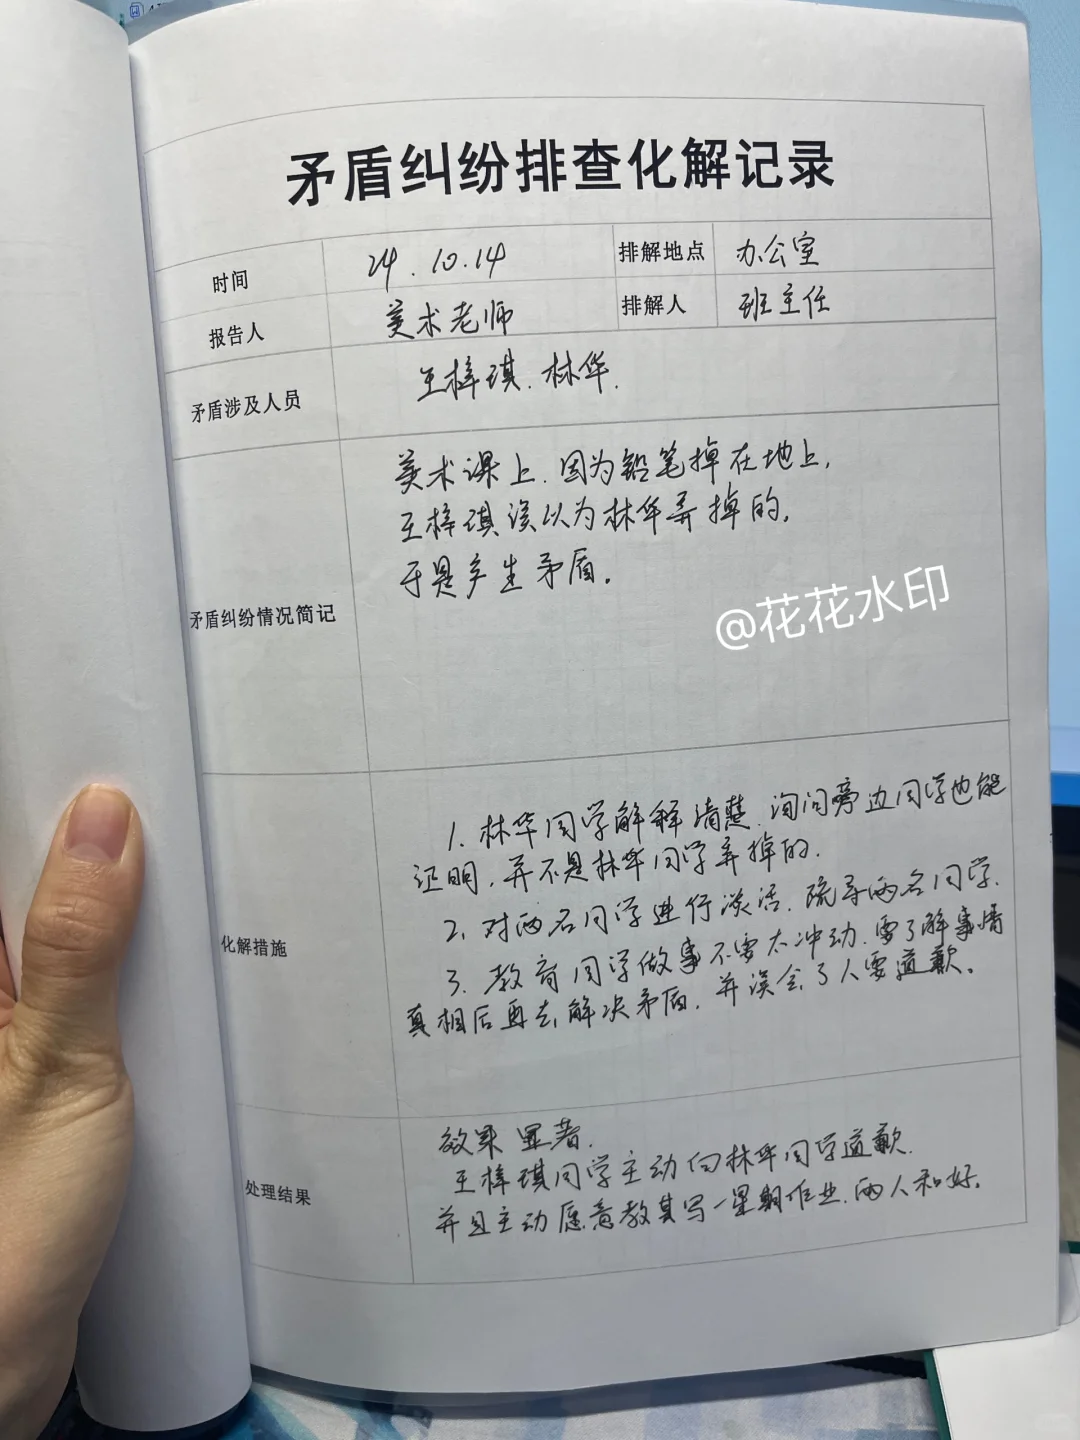 矛盾纠纷排查化解记录
时间 24.10.14 排解地点 办公室
报告人 美术老师 排解人 班主任
矛盾涉及人员 王梓琪.林华.
美术课上.因为铅笔掉在地上,
王梓琪误以为林华弄掉的,
于是产生矛盾。
矛盾纠纷情况简记
@花花水印
1.林华同学解释清楚.询问旁边同学也能
证明,并不是林华同学弄掉的.
2.对两名同学进行谈话.疏导两名同学.
化解措施
3.教育同学做事不要太冲动.要了解事情
真相后再去解决矛盾,并误会了人要道歉。
效果显著.
处理结果
王梓琪同学主动向林华同学道歉.
并且主动愿意教其写一星期作业.两人和好。